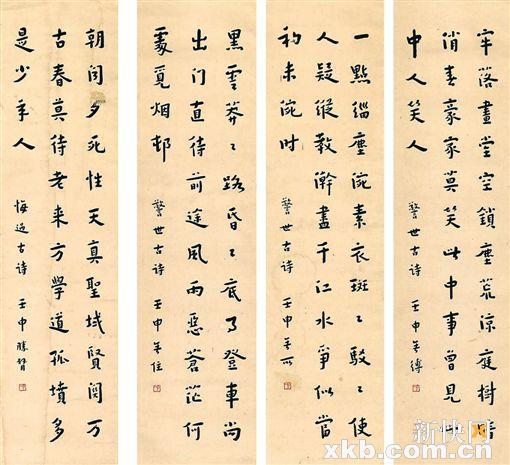 牢落畫堂空鎖塵荒涼庭樹暗
消春豪家莫笑此中事曾見此
中人笑人
警世古诗 壬申 無縛
一點緇塵涴素衣斑〻駁〻使
人疑縱教澣盡千江水爭似當
初未涴時
警世古诗 壬申 無所
黑雲莽〻路昏〻底事登車尚
出门直待前途風雨惡蒼茫何
處覓烟邨
警世古诗 壬申 無住
朝闻夕死性天真聖域賢関万
古春莫待老来方學道孤墳多
是少年人
悔過古诗 壬申 勝髻
新快网
xkb.com.cn